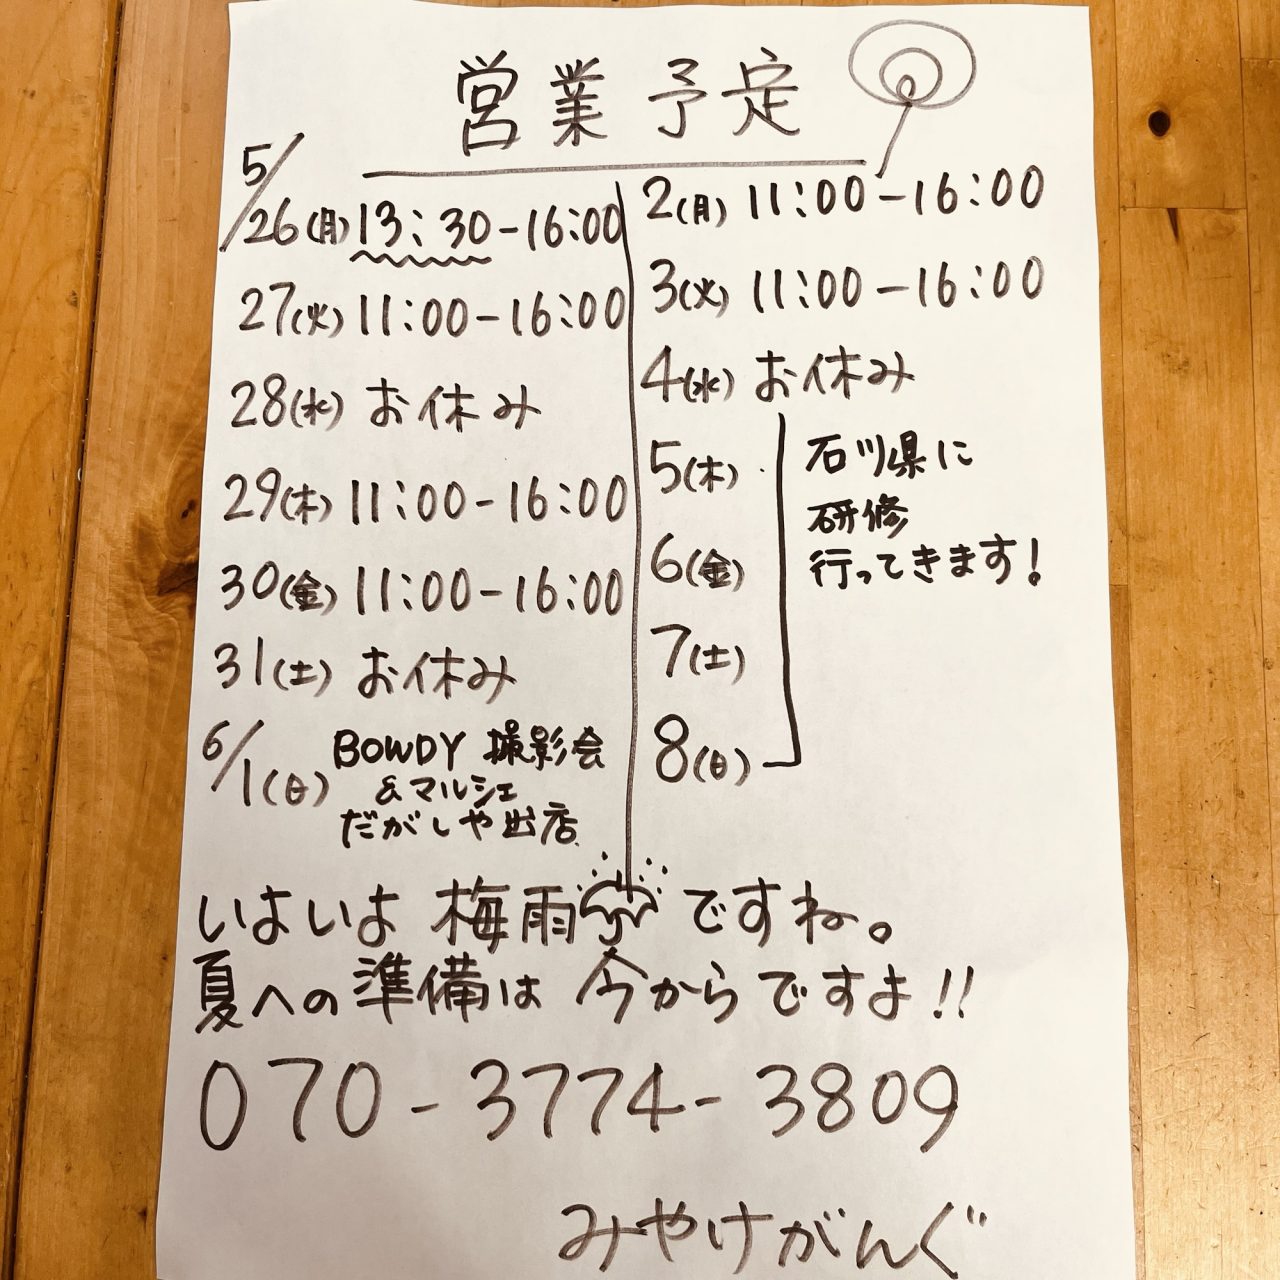 営業予定
5/26(月) 13:30-16:00
27(火) 11:00-16:00
28(水) お休み
29(木) 11:00-16:00
30(金) 11:00-16:00
31(土) お休み
6/1(日) BOWDY 撮影会
&マルシェ
だがしや出店
2(月) 11:00-16:00
3(火) 11:00-16:00
4(水) お休み
5(木)
6(金)
7(土)
8(日)
石川県に
研修
行ってきます!
いよいよ梅雨ですね。
夏への準備は今からですよ!!
070-3774-3809
みやけがんぐ